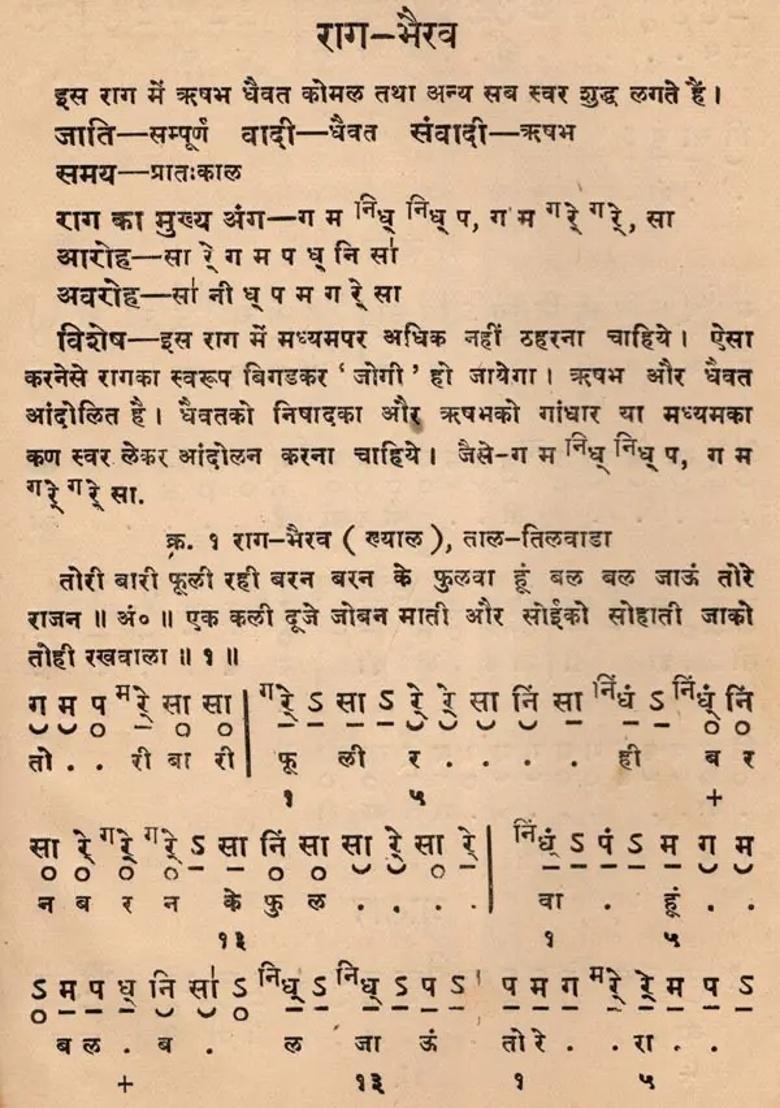 राग-भैरव
इस राग में ऋषभ धैवत कोमल तथा अन्य सब स्वर शुद्ध लगते हैं।
जाति—सम्पूर्ण वादी—धैवत संवादी—ऋषभ
समय—प्रातःकाल
राग का मुख्य अंग—ग म निध़् निध़् प, ग म गरे़् गरे़्, सा
आरोह—सा रे़् ग म प ध़् नि सां
अवरोह—सां नी ध़् प म ग रे़् सा
विशेष—इस राग में मध्यमपर अधिक नहीं ठहरना चाहिये। ऐसा
करनेसे रागका स्वरूप बिगडकर ‘ जोगी ’ हो जायेगा। ऋषभ और धैवत
आंदोलित है। धैवतको निषादका और ऋषभको गांधार या मध्यमका
कण स्वर लेकर आंदोलन करना चाहिये। जैसे-ग म निध़् निध़् प, ग म
गरे़् गरे़् सा.
क्र. १ राग-भैरव ( ख्याल ), ताल-तिलवाडा
तोरी बारी फूली रही बरन बरन के फुलवा हूं बल बल जाऊं तोरे
राजन ॥ अं० ॥ एक कली दूजे जोबन माती और सोईको सोहाती जाको
तोही रखवाला ॥ १ ॥
ग म प मरे़् सा सा | गरे़् ऽ सा ऽ रे़् रे़् सा निं सा निंधं ऽ निंध़ं निं
तो . . री बा री | फू ली र . . . . ही ब र
१ ५ +
सा रे़् गरे़् गरे़् ऽ सा निं सा सा रे़् सा रे़् | निंध़ं ऽ पं ऽ म ग म
न ब र न के फु ल . . . . | वा . हूं . .
१३ १ ५
ऽ म प ध़् नि सां ऽ निध़् ऽ निध़् ऽ प ऽ | प म ग मरे़् रे़् म प ऽ
ब ल . ब . ल जा ऊं तो रे . . रा . .
+ १३ १ ५